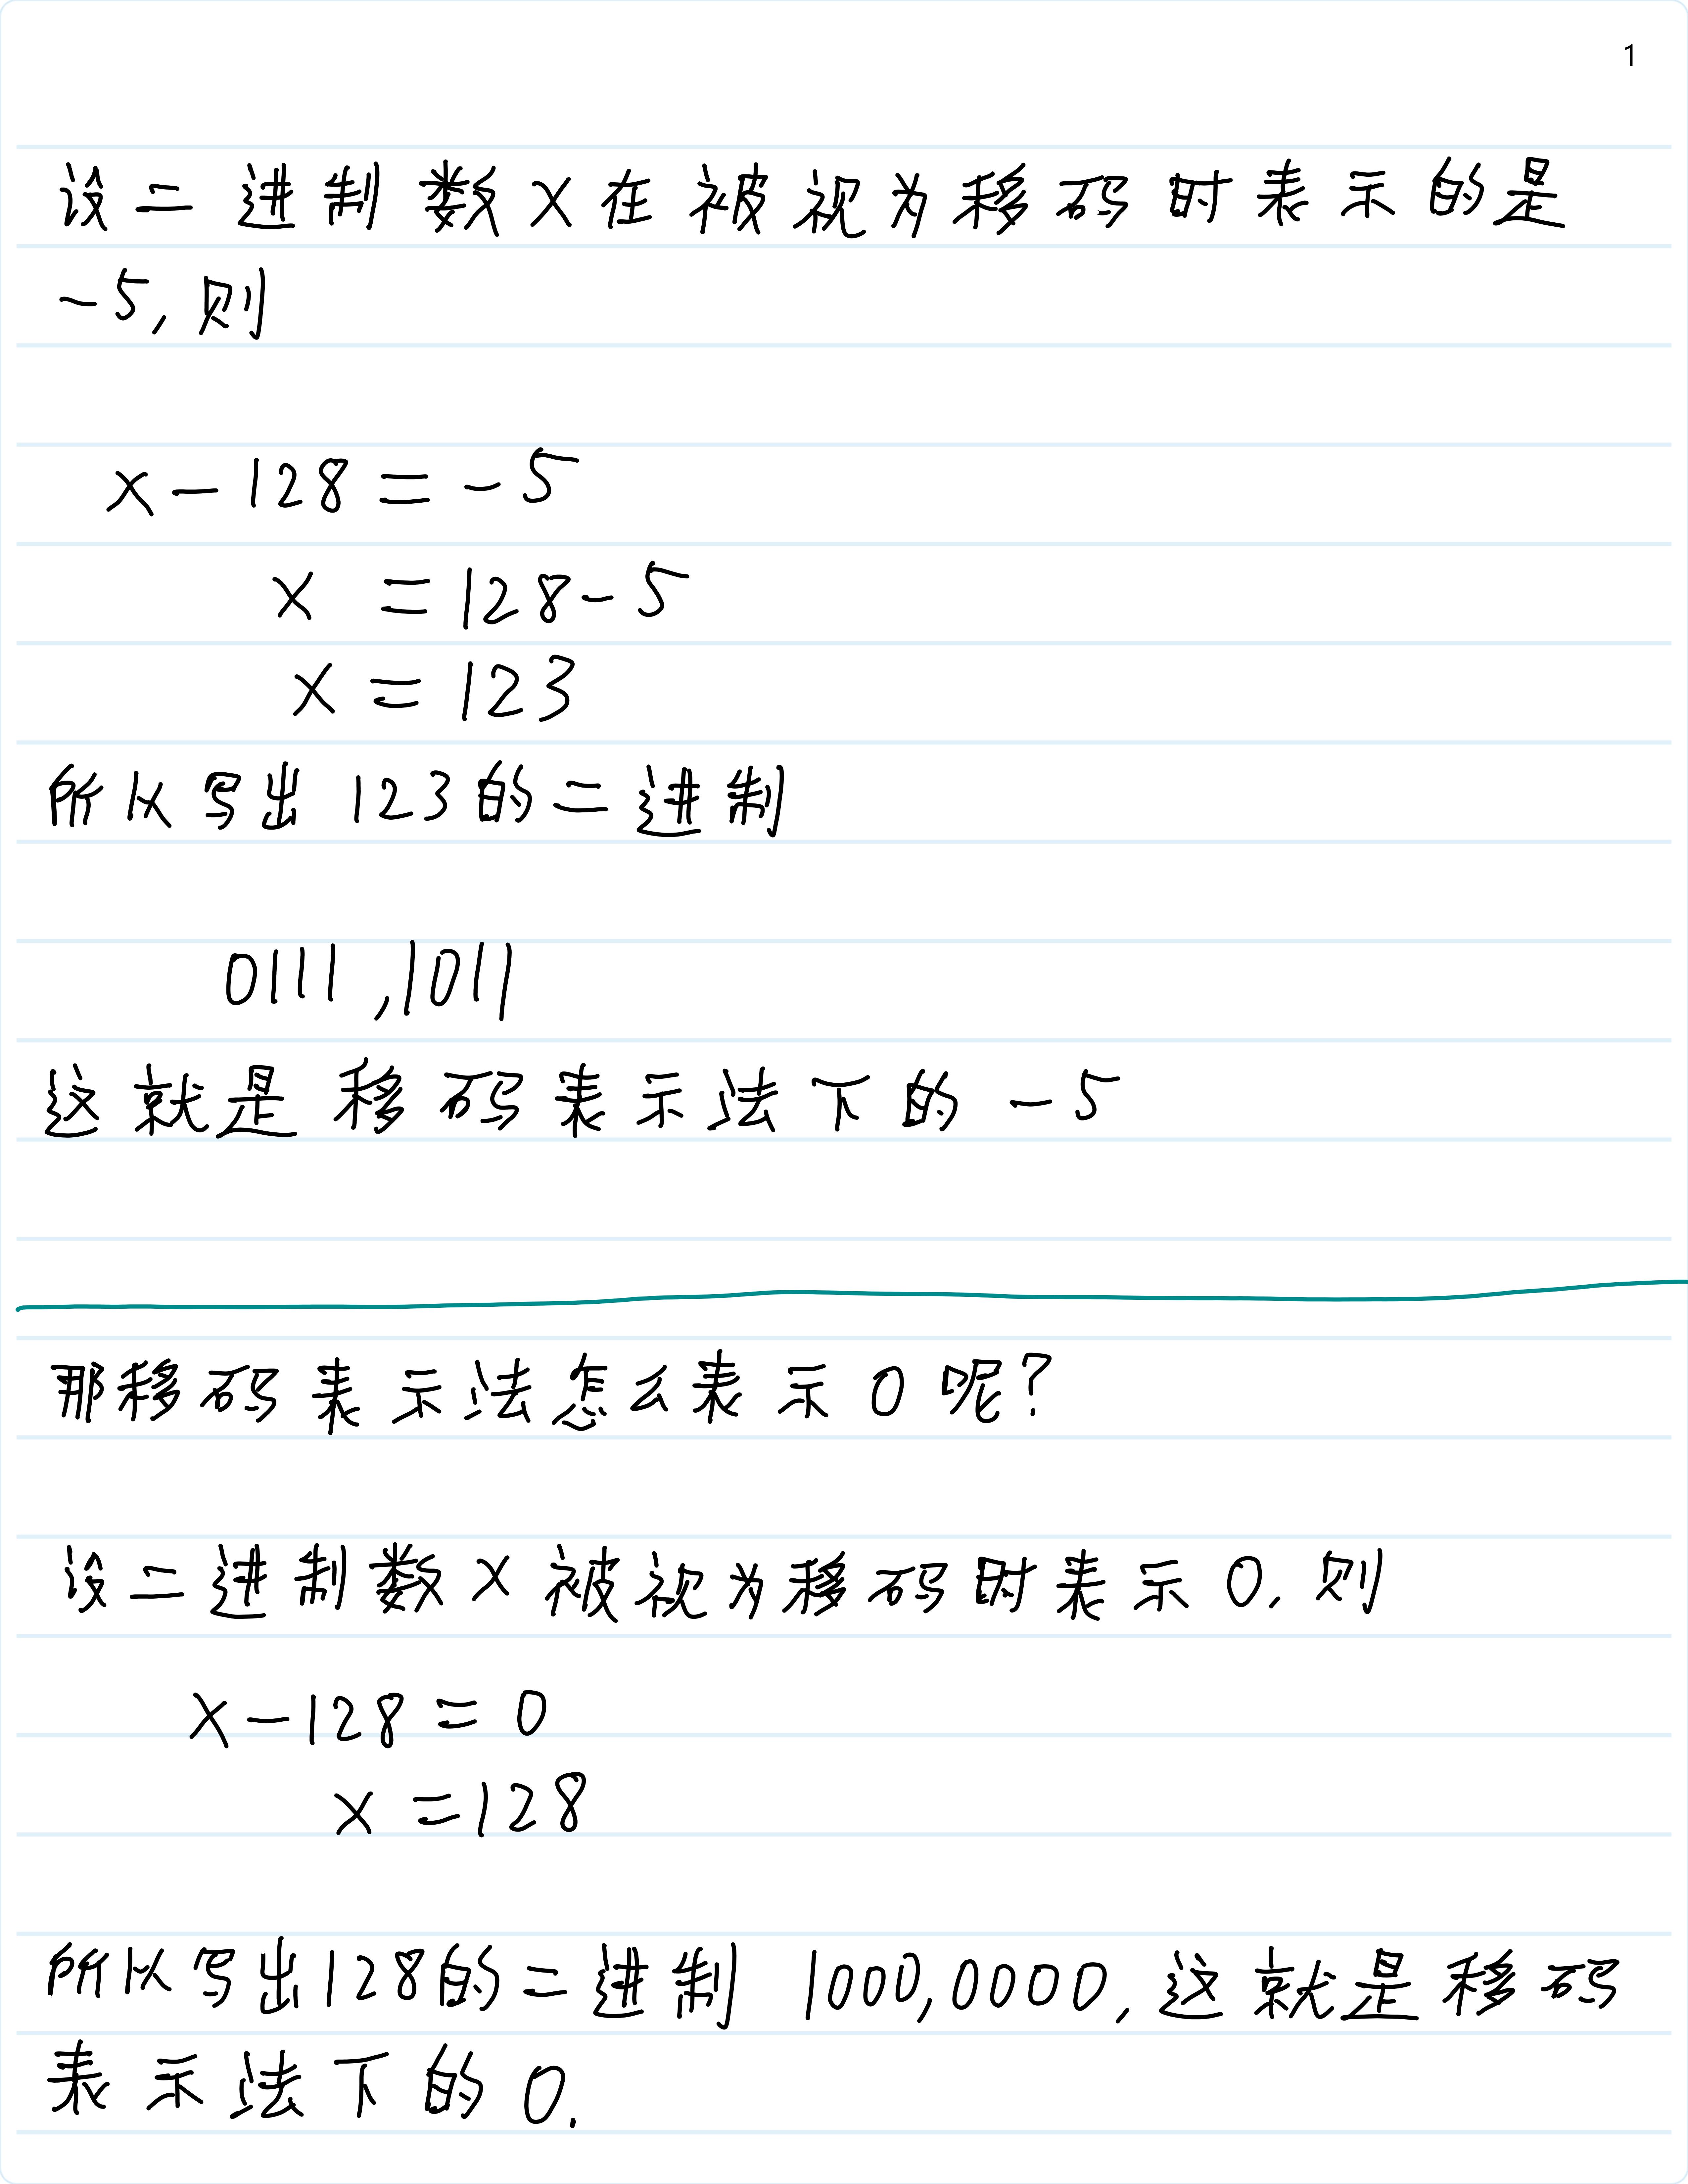 1
设二进制数X在被视为移码时表示的是
-5,则
x-128=-5
x=128-5
x=123
所以写出123的二进制
0111,1011
这就是移码表示法下的-5
那移码表示法怎么表示0呢?
设二进制数x被视为移码时表示0,则
x-128=0
x=128
所以写出128的二进制1000,0000,这就是移码
表示法下的0.